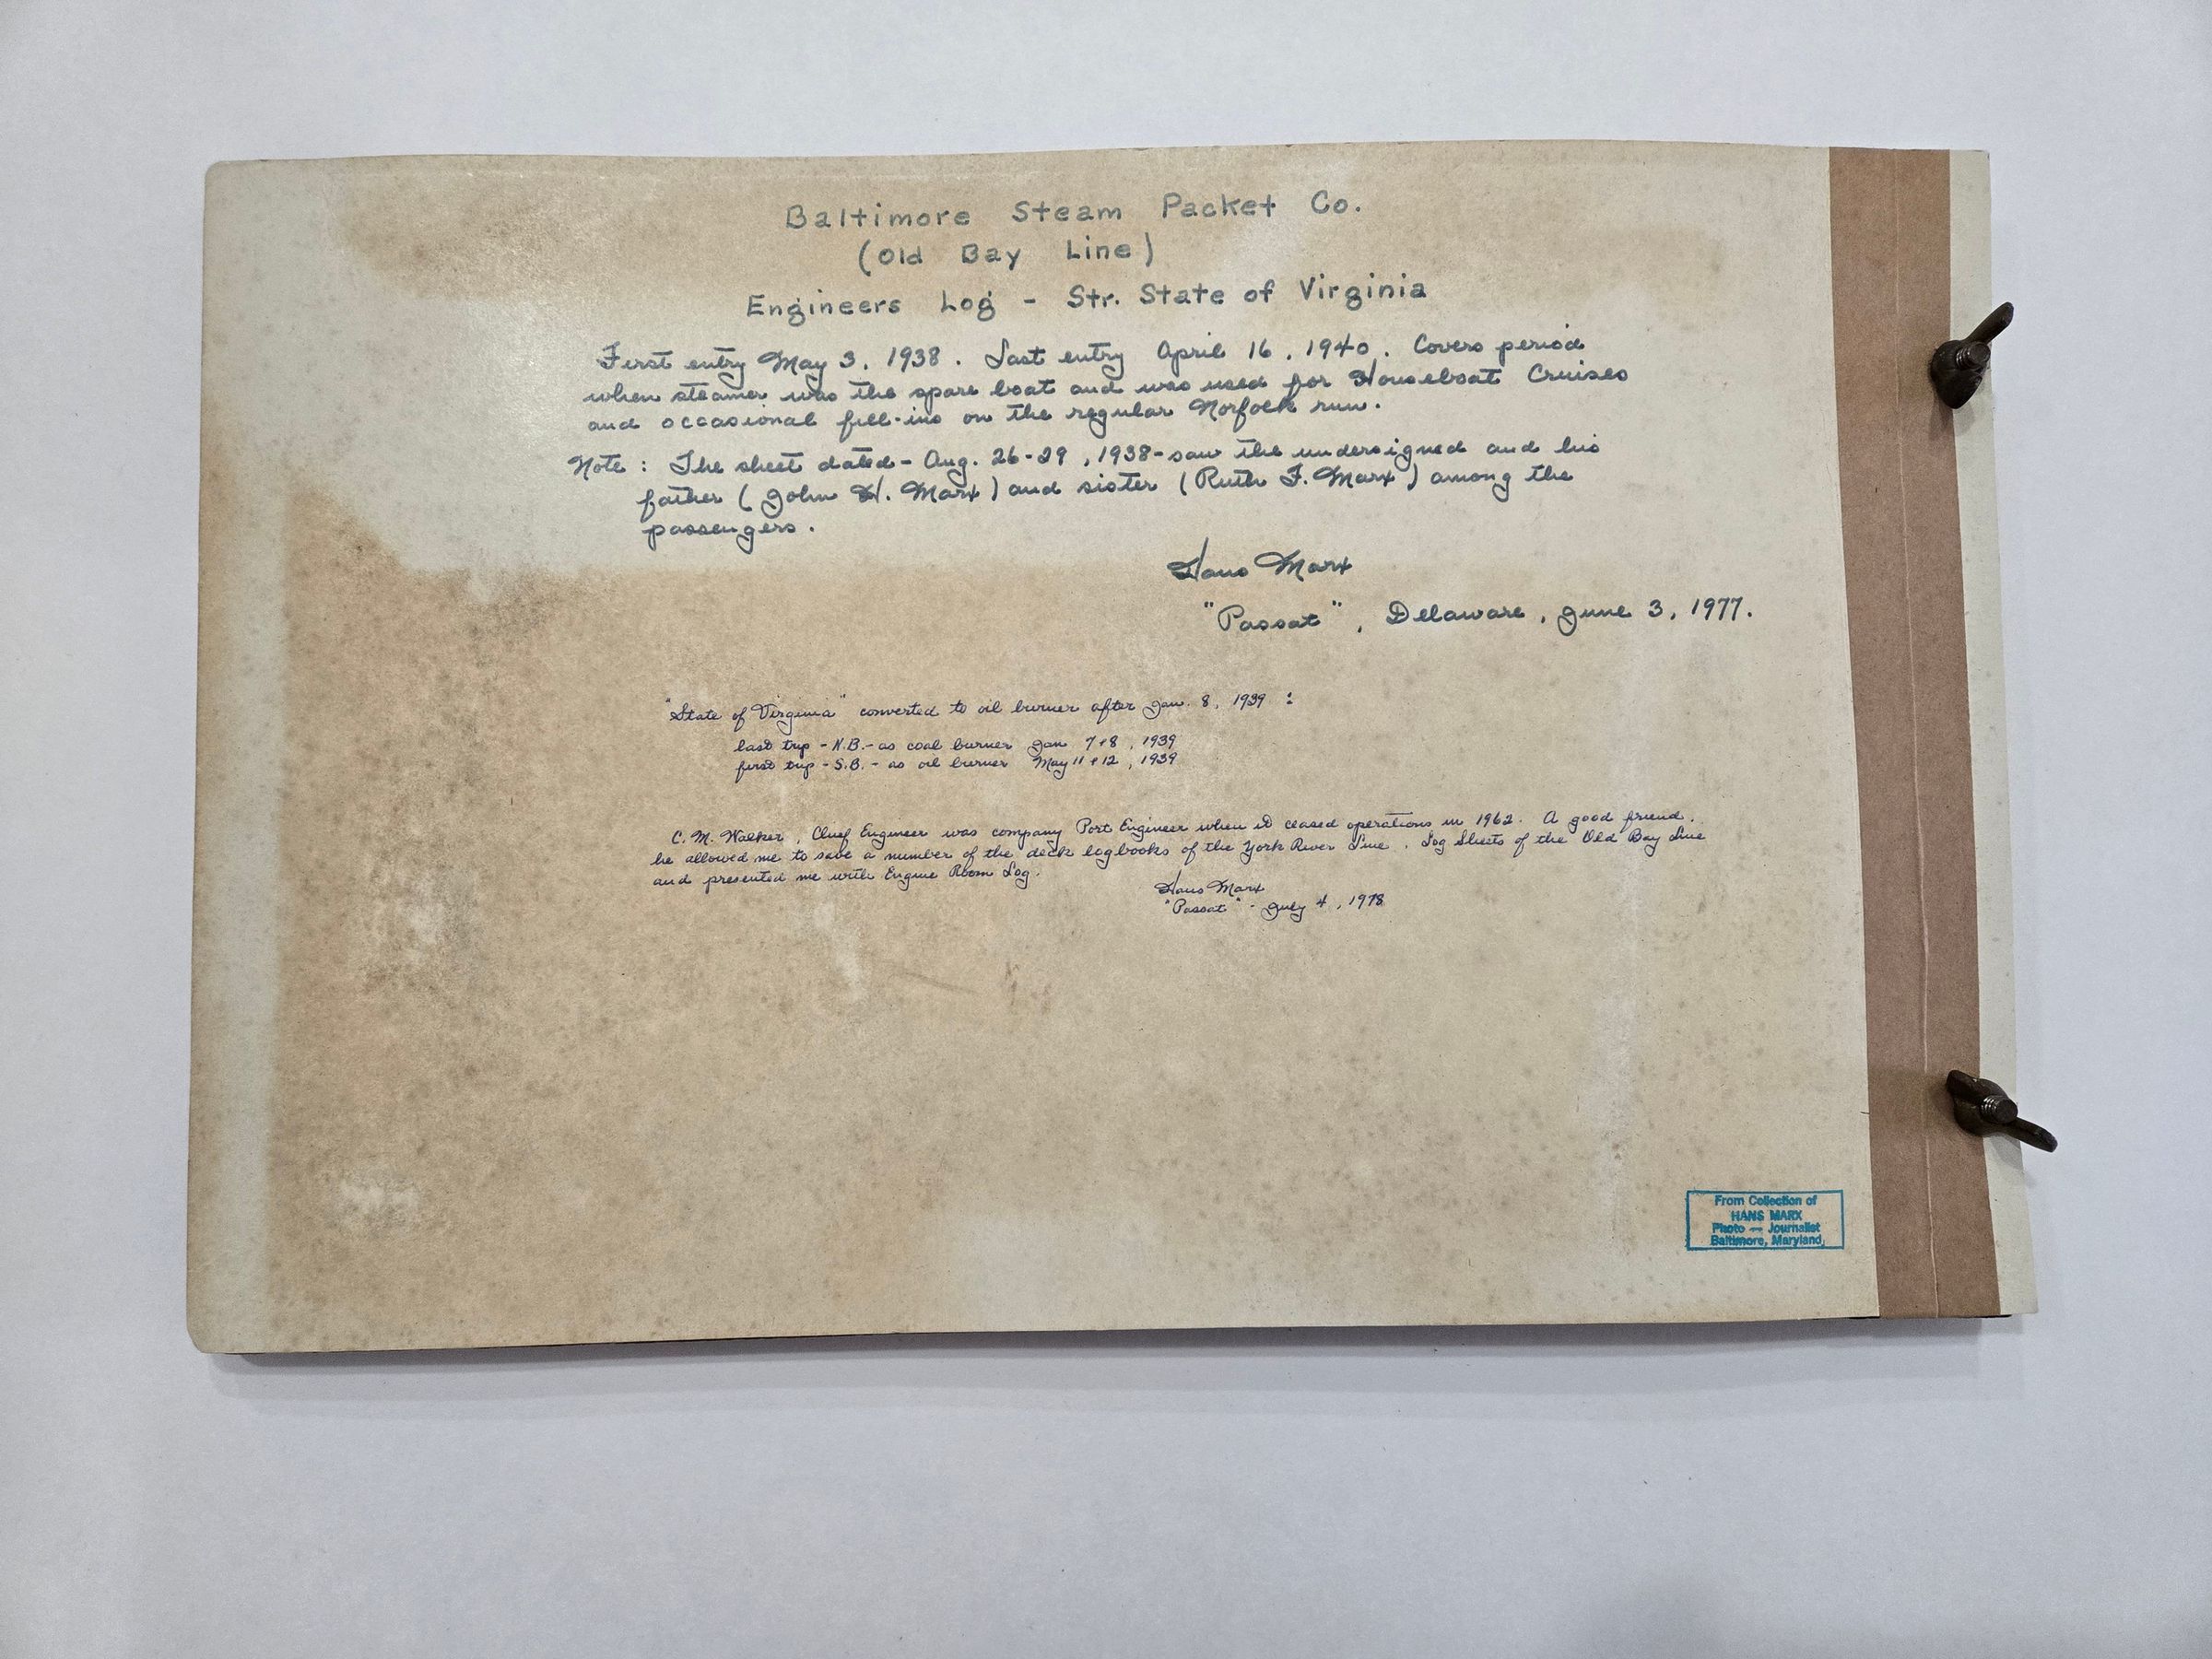 Baltimore Steam Packet Co.
(Old Bay Line)
Engineers Log - Str. State of Virginia
First entry May 3, 1938. Last entry April 16, 1940. Covers period
when steamer was the spare boat and was used for Houseboat Cruises
and occasional fill-ins on the regular Norfolk run.
Note: The sheet dated - Aug. 26-29, 1938 - saw the undersigned and his
father (John H. Marx) and sister (Ruth F. Marx) among the
passengers.
Hans Marx
"Passat", Delaware, June 3, 1977.
"State of Virginia" converted to oil burner after Jan. 8, 1939 :
last trip - N.B. - as coal burner Jan 7+8, 1939
first trip - S.B. - as oil burner May 11+12, 1939
C. M. Walker, Chief Engineer was company Port Engineer when it ceased operations in 1962. A good friend,
he allowed me to save a number of the deck logbooks of the York River Line, Log Sheets of the Old Bay Line
and presented me with Engine Room Log.
Hans Marx
"Passat" - July 4, 1978
From Collection of
HANS MARX
Photo — Journalist
Baltimore, Maryland,